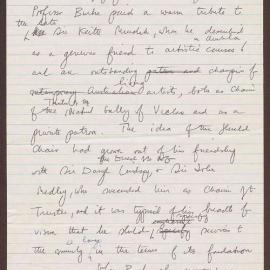 Professor Burke paid a warm tribute to
the late
Sir Keith Murdoch, when he described
in Australia
as a generous friend to artistic causes
and an outstanding champion of
living
contemporary Australian artists, both as Chairman
Trustees of
of the National Gallery of Victoria and as a
private patron. The idea of the Herald
Chair had grown out of his friendship
with Sir Daryl Lindsay, & Sir John
Medley, who succeeded him as Chairman of
Trustees, and it was typical of his breadth of
vision that he should, services to
the community in the terms of its foundation